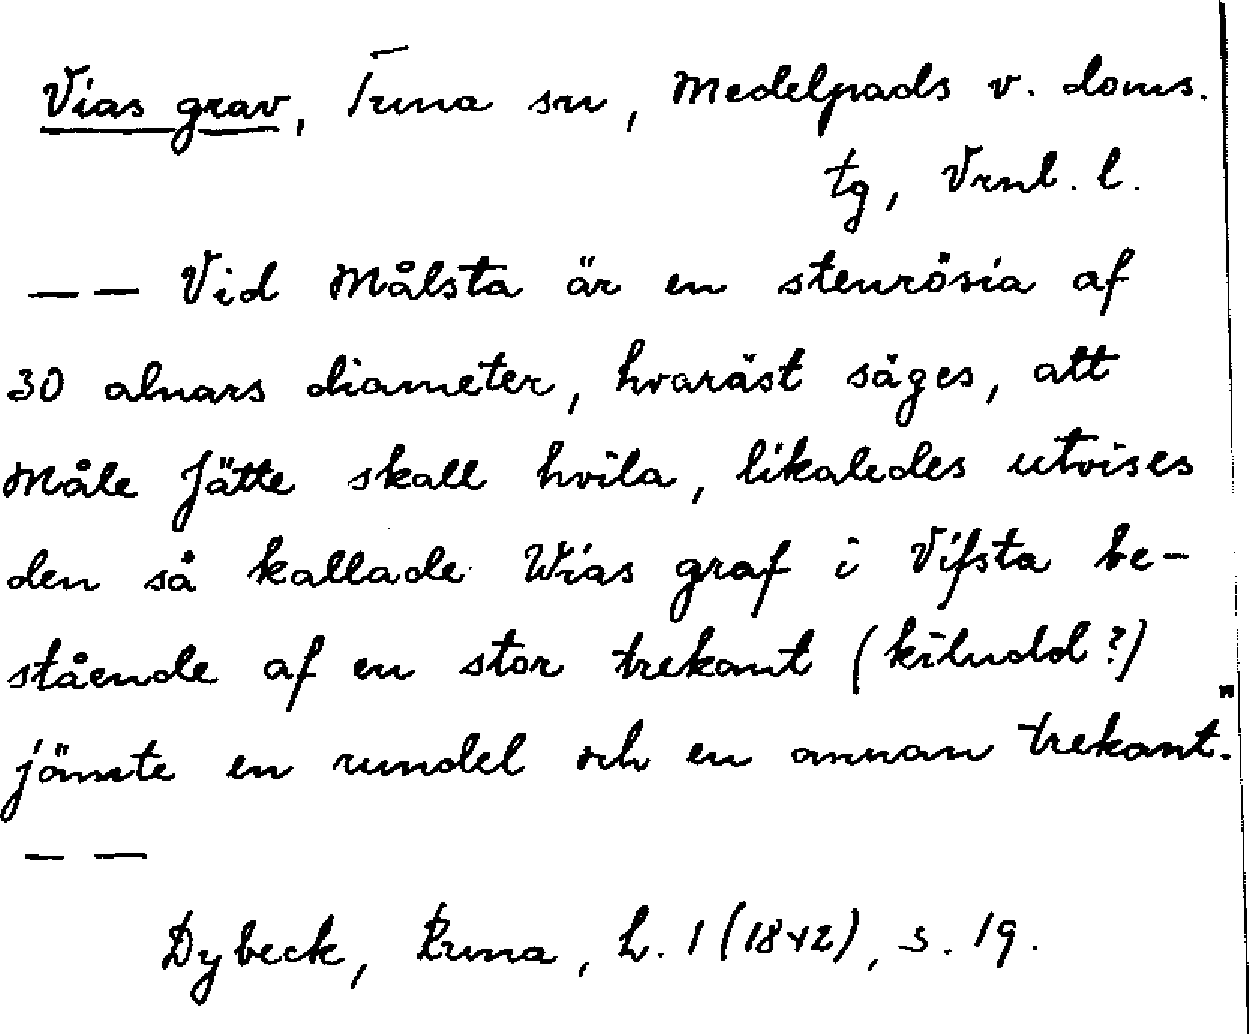 Vias grav, Tuna sn, Medelpads v. doms.
tg, Vrnl. l.
— — Vid Målsta är en stenrösia af
30 alnars diameter, hvaräst säges, att
Måle Jätte skall hvila, likaledes utvises
den så kallade Wias graf i Vifsta be-
stående af en stor trekant (kiludd?)
jämte en rundel och en annan trekant."
— —
Dybeck, Runa, h. 1 (1842), s. 19.